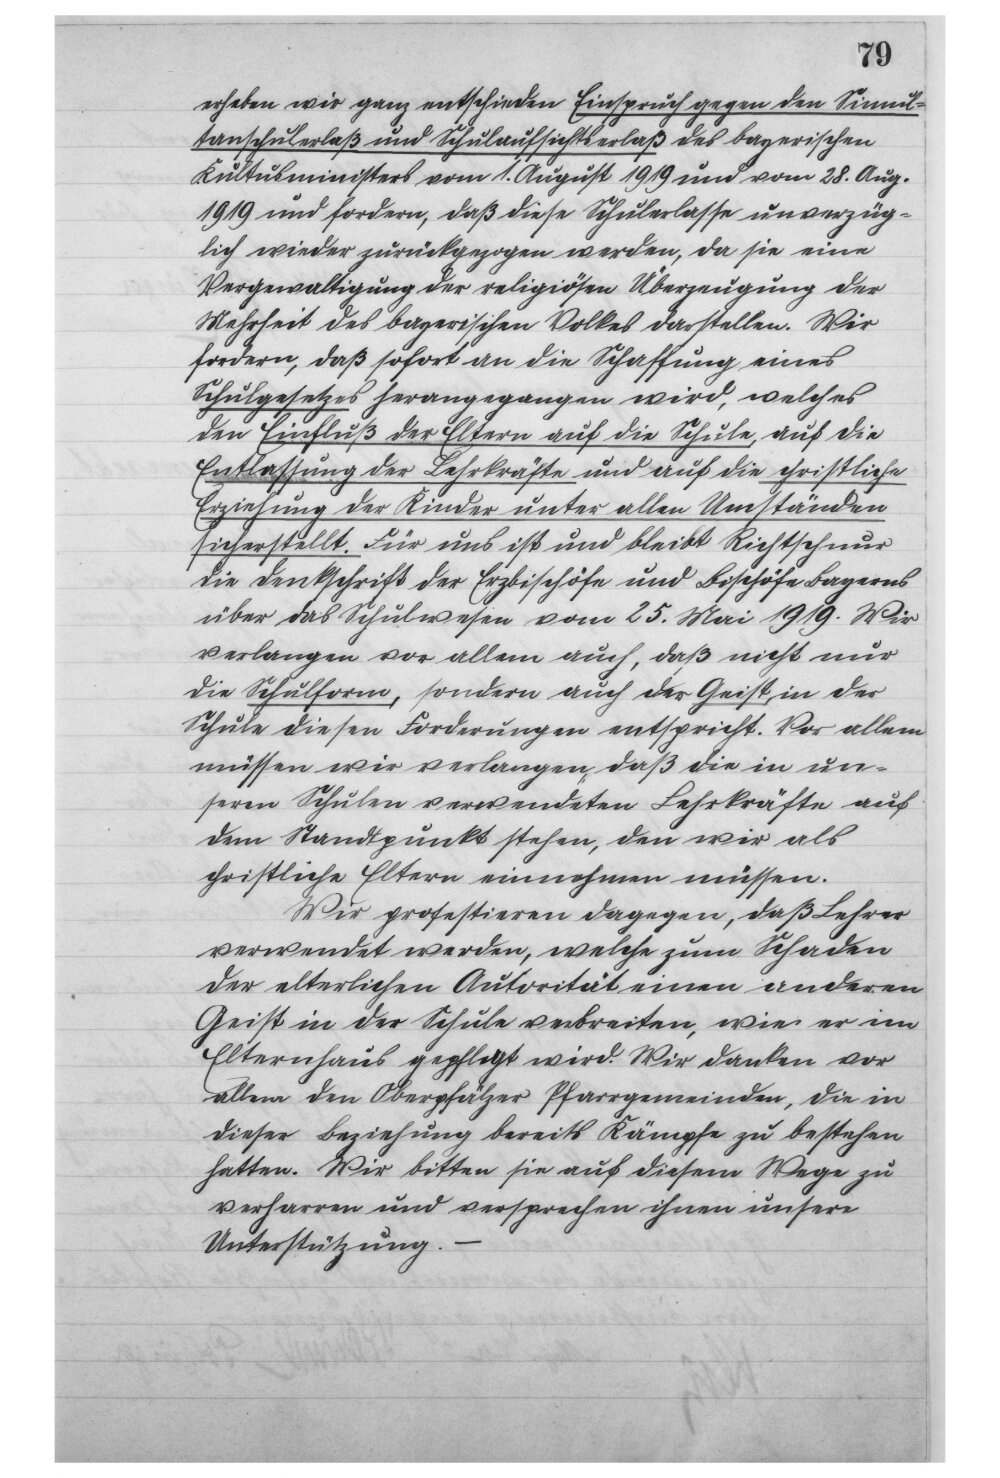 79
erheben wir ganz entschieden Einspruch gegen den Simul=
tanschulerlaß und Schulaufsichtserlaß des bayerischen
Kultusministers vom 1. August 1919 und vom 28. Aug.
1919 und fordern, daß diese Schulerlasse unverzüg=
lich wieder zurückgezogen werden, da sie eine
Vergewaltigung der religiösen Überzeugung der
Mehrheit des bayerischen Volkes darstellen. Wir
fordern, daß sofort an die Schaffung eines
Schulgesetzes herangegangen wird, welches
den Einfluß der Eltern auf die Schule, auf die
Entlassung der Lehrkräfte und auf die christliche
Erziehung der Kinder unter allen Umständen
sicherstellt. Für uns ist und bleibt Richtschnur
die Denkschrift der Erzbischöfe und Bischöfe Bayerns
über das Schulwesen vom 25. Mai 1919. Wir
verlangen vor allem auch, daß nicht nur
die Schulform, sondern auch der Geist in der
Schule diesen Forderungen entspricht. Vor allem
müssen wir verlangen, daß die in un=
seren Schulen verwendeten Lehrkräfte auf
dem Standpunkt stehen, den wir als
christliche Eltern einnehmen müssen.
Wir protestieren dagegen, daß Lehrer
verwendet werden, welche zum Schaden
der elterlichen Autorität einen anderen
Geist in der Schule verbreiten, wie er im
Elternhaus gepflegt wird. Wir danken vor
allem den Oberpfälzer Pfarrgemeinden, die in
dieser Beziehung bereits Kämpfe zu bestehen
hatten. Wir bitten sie auf diesem Wege zu
verharren und versprechen ihnen unsere
Unterstützung. —